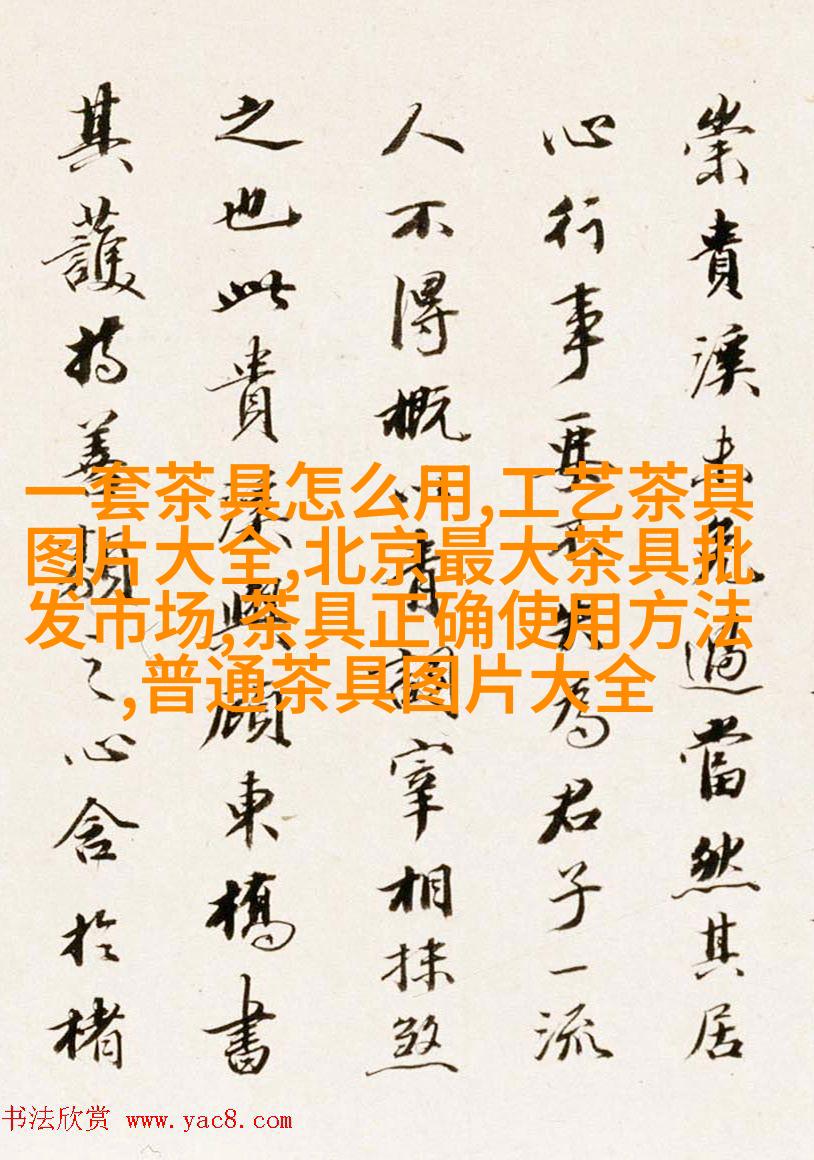 崇貴溪未免過當然其居
心行事要不失為君子一流
人不得概以青詞宰相抹煞
之也此貴溪與顧東橋書
其護持善類之心含於楮
一套茶具怎么用,工艺茶具
图片大全,北京最大茶具批
发市场,茶具正确使用方法
,普通茶具图片大全
书法欣赏 www.yac8.com